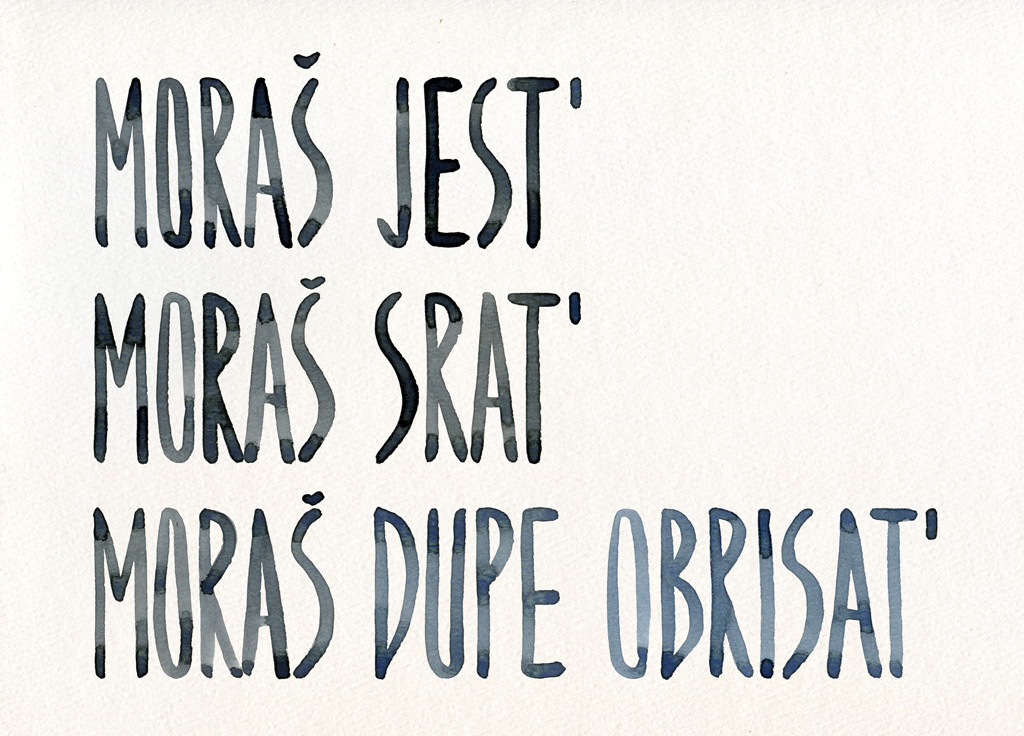 MORAŠ JEST'
MORAŠ SRAT'
MORAŠ DUPE OBRISAT'